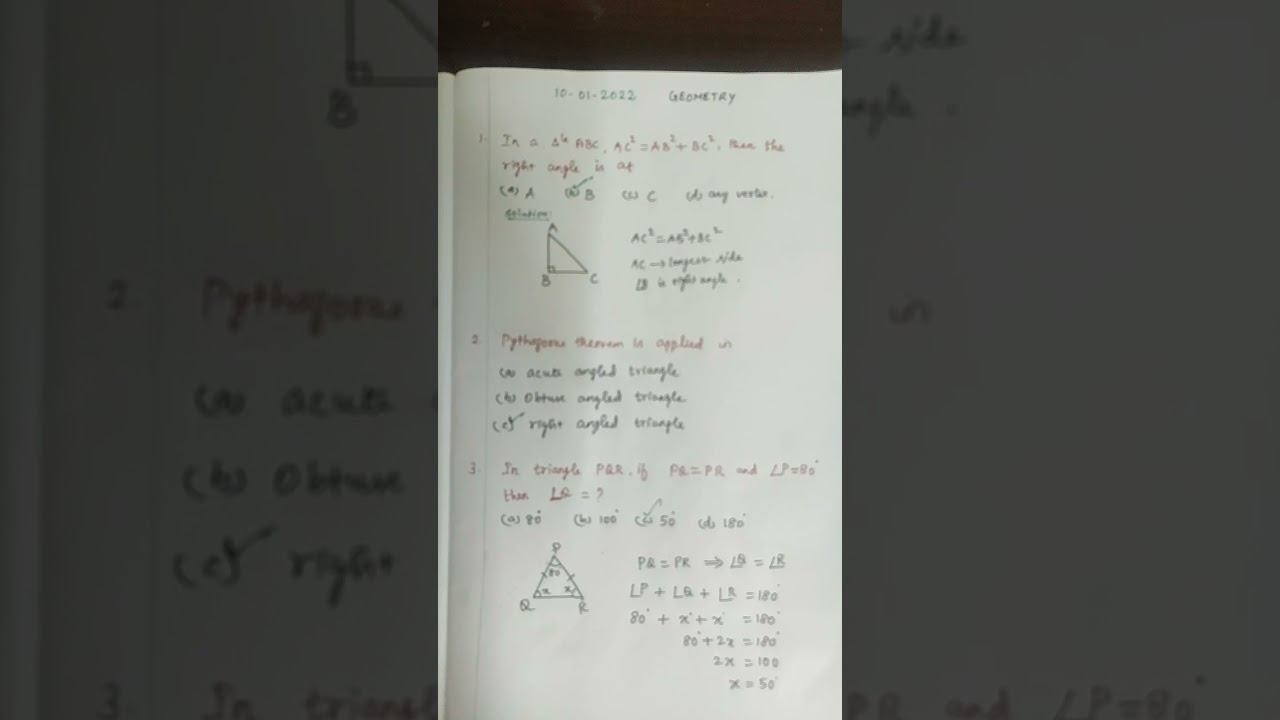 10-01-2022 GEOMETRY
1. In a Δle ABC, AC² = AB² + BC², then the
right angle is at
(a) A (b) B (c) C (d) any vertex.
Solution:
A
B C
AC² = AB² + BC²
AC → longest side
∠B is right angle.
2. Pythagoras theorem is applied in
(a) acute angled triangle
(b) Obtuse angled triangle
(c) right angled triangle
3. In triangle PQR, if PQ = PR and ∠P = 80°
then ∠Q = ?
(a) 80° (b) 100° (c) 50° (d) 180°
P
80
x x
Q R
PQ = PR ⇒ ∠Q = ∠R
∠P + ∠Q + ∠R = 180°
80° + x° + x° = 180°
80° + 2x = 180°
2x = 100
x = 50°